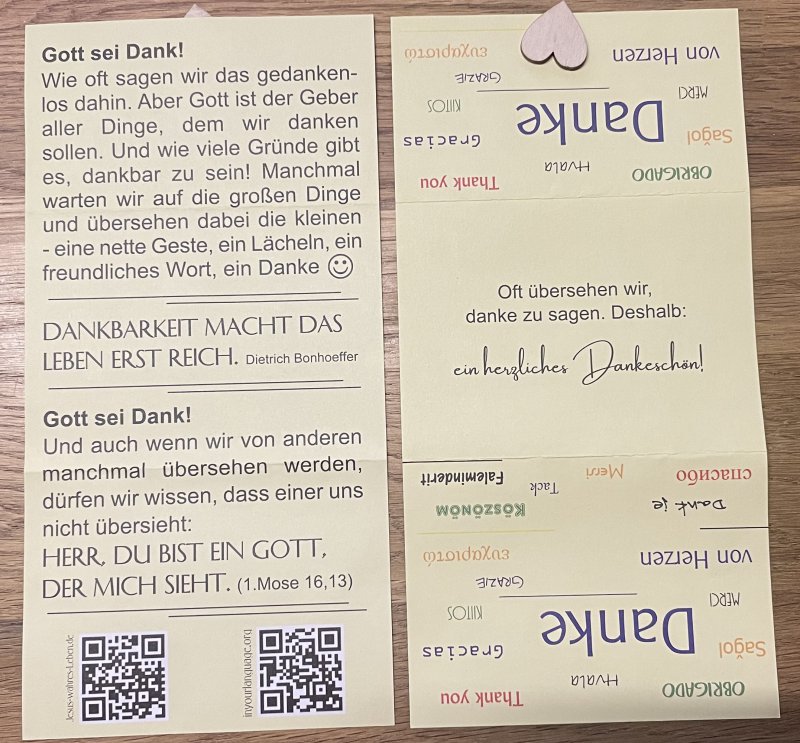 Gott sei Dank!
Wie oft sagen wir das gedanken-
los dahin. Aber Gott ist der Geber
aller Dinge, dem wir danken
sollen. Und wie viele Gründe gibt
es, dankbar zu sein! Manchmal
warten wir auf die großen Dinge
und übersehen dabei die kleinen
- eine nette Geste, ein Lächeln, ein
freundliches Wort, ein Danke ☺
DANKBARKEIT MACHT DAS
LEBEN ERST REICH. Dietrich Bonhoeffer
Gott sei Dank!
Und auch wenn wir von anderen
manchmal übersehen werden,
dürfen wir wissen, dass einer uns
nicht übersieht:
HERR, DU BIST EIN GOTT,
DER MICH SIEHT. (1.Mose 16,13)
Jesus-wahres-Leben.de
inyourlanguage.org
OBRIGADO
Hvala
Thank you
Sağol
Danke
Gracias
MERCI
KIITOS
GRAZIE
von Herzen
ευχαριστώ
Oft übersehen wir,
danke zu sagen. Deshalb:
ein herzliches Dankeschön!
Dank je
KÖSZÖNÖM
спасибо
Merci
Tack
Faleminderit
OBRIGADO
Hvala
Thank you
Sağol
Danke
Gracias
MERCI
KIITOS
GRAZIE
von Herzen
ευχαριστώ